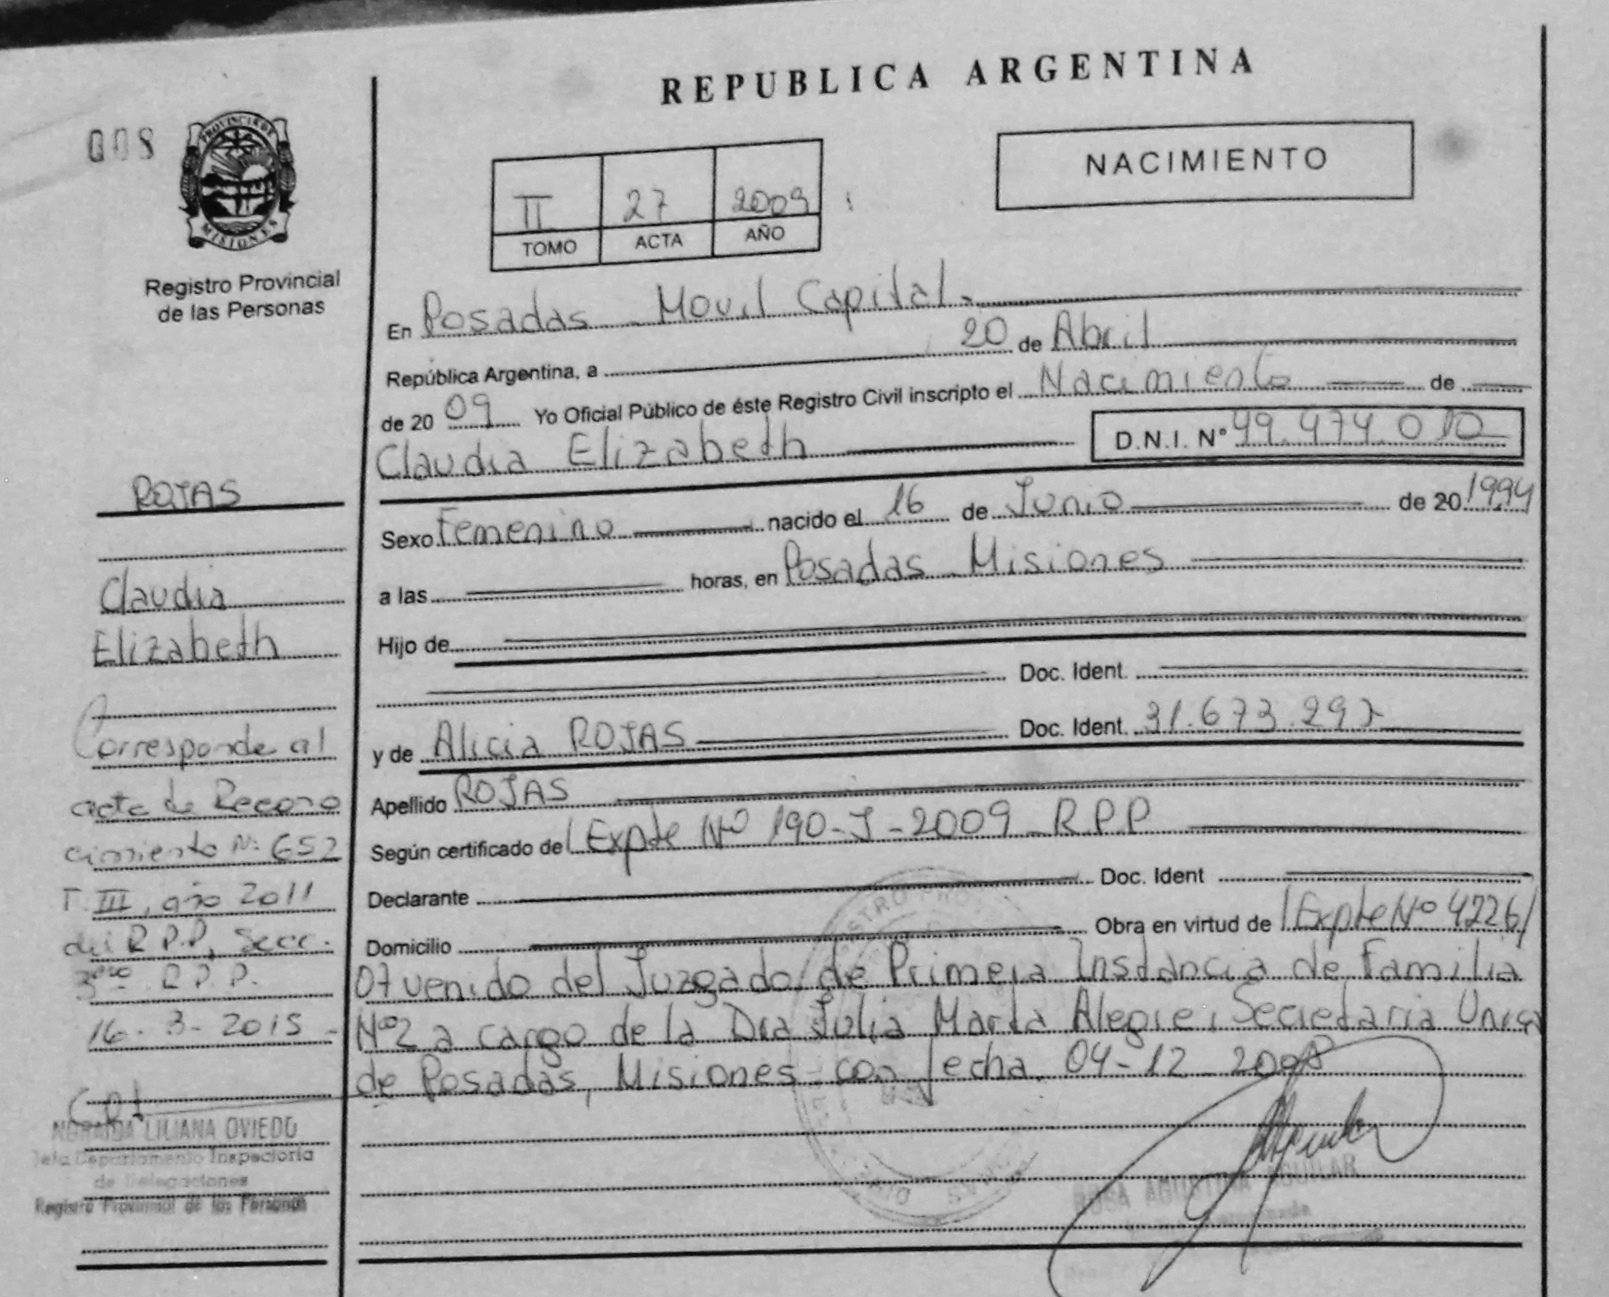 REPUBLICA ARGENTINA
008
PROVINCIA DE
MISIONES
Registro Provincial
de las Personas
NACIMIENTO
II 27 2009
TOMO ACTA AÑO
En Posadas - Movil Capital.-
República Argentina, a 20 de Abril
de 20 09 Yo Oficial Público de éste Registro Civil inscripto el Nacimiento de
Claudia Elizabeth D.N.I. Nº 49.474.010
Sexo Femenino nacido el 16 de Junio de 20 1994
a las horas, en Posadas - Misiones
Hijo de
Doc. Ident.
y de Alicia ROJAS Doc. Ident. 31.673.297
Apellido ROJAS
Según certificado del Expte Nº 190-J-2009 R.P.P
Declarante Doc. Ident
Domicilio Obra en virtud de Expte Nº 4226/
07 venido del Juzgado de Primera Instancia de Familia
Nº2 a cargo de la Dra Julia Marta Alegre, Secretaria Unica
de Posadas, Misiones con fecha 04-12-2008
ROJAS
Claudia
Elizabeth
Corresponde al
acta de Recono
cimiento Nº: 652
T. III, año 2011
del R.P.P, Secc.
3era R.P.P.
16-3-2015-
LILIANA OVIEDO
Jefa Departamento Inspectoria
de Delegaciones
Registro Provincial de las Personas
ROSA AGUSTINA AGUILAR